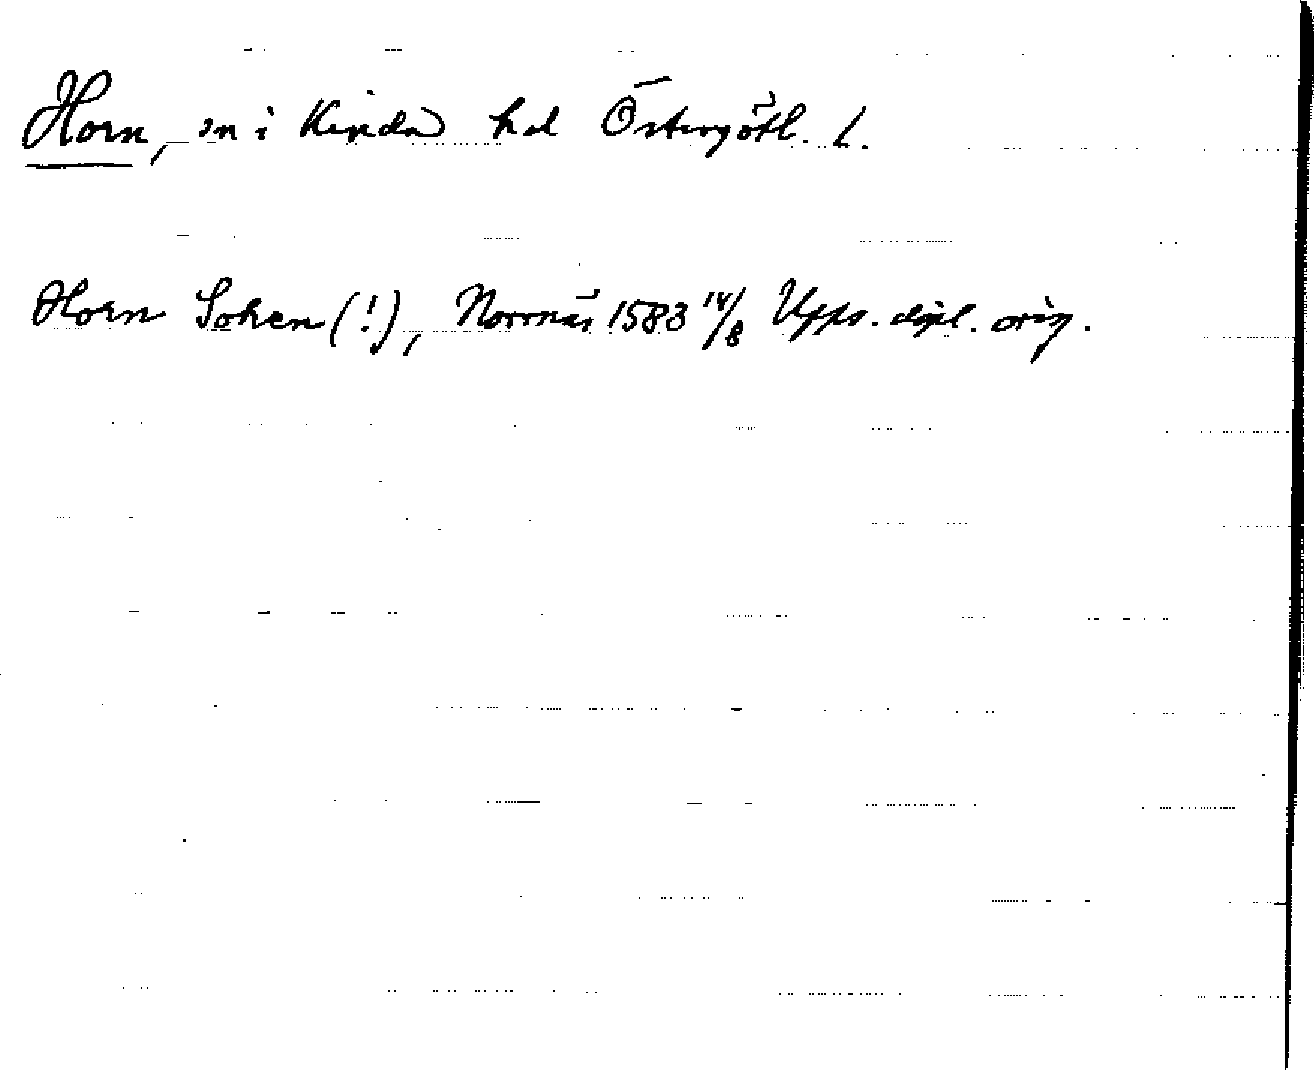 Horn, sn i Kinda hd Östergötl. l.
Horn Soken (!), Norrnäs 1583 14/8 Upps. dipl. orig.